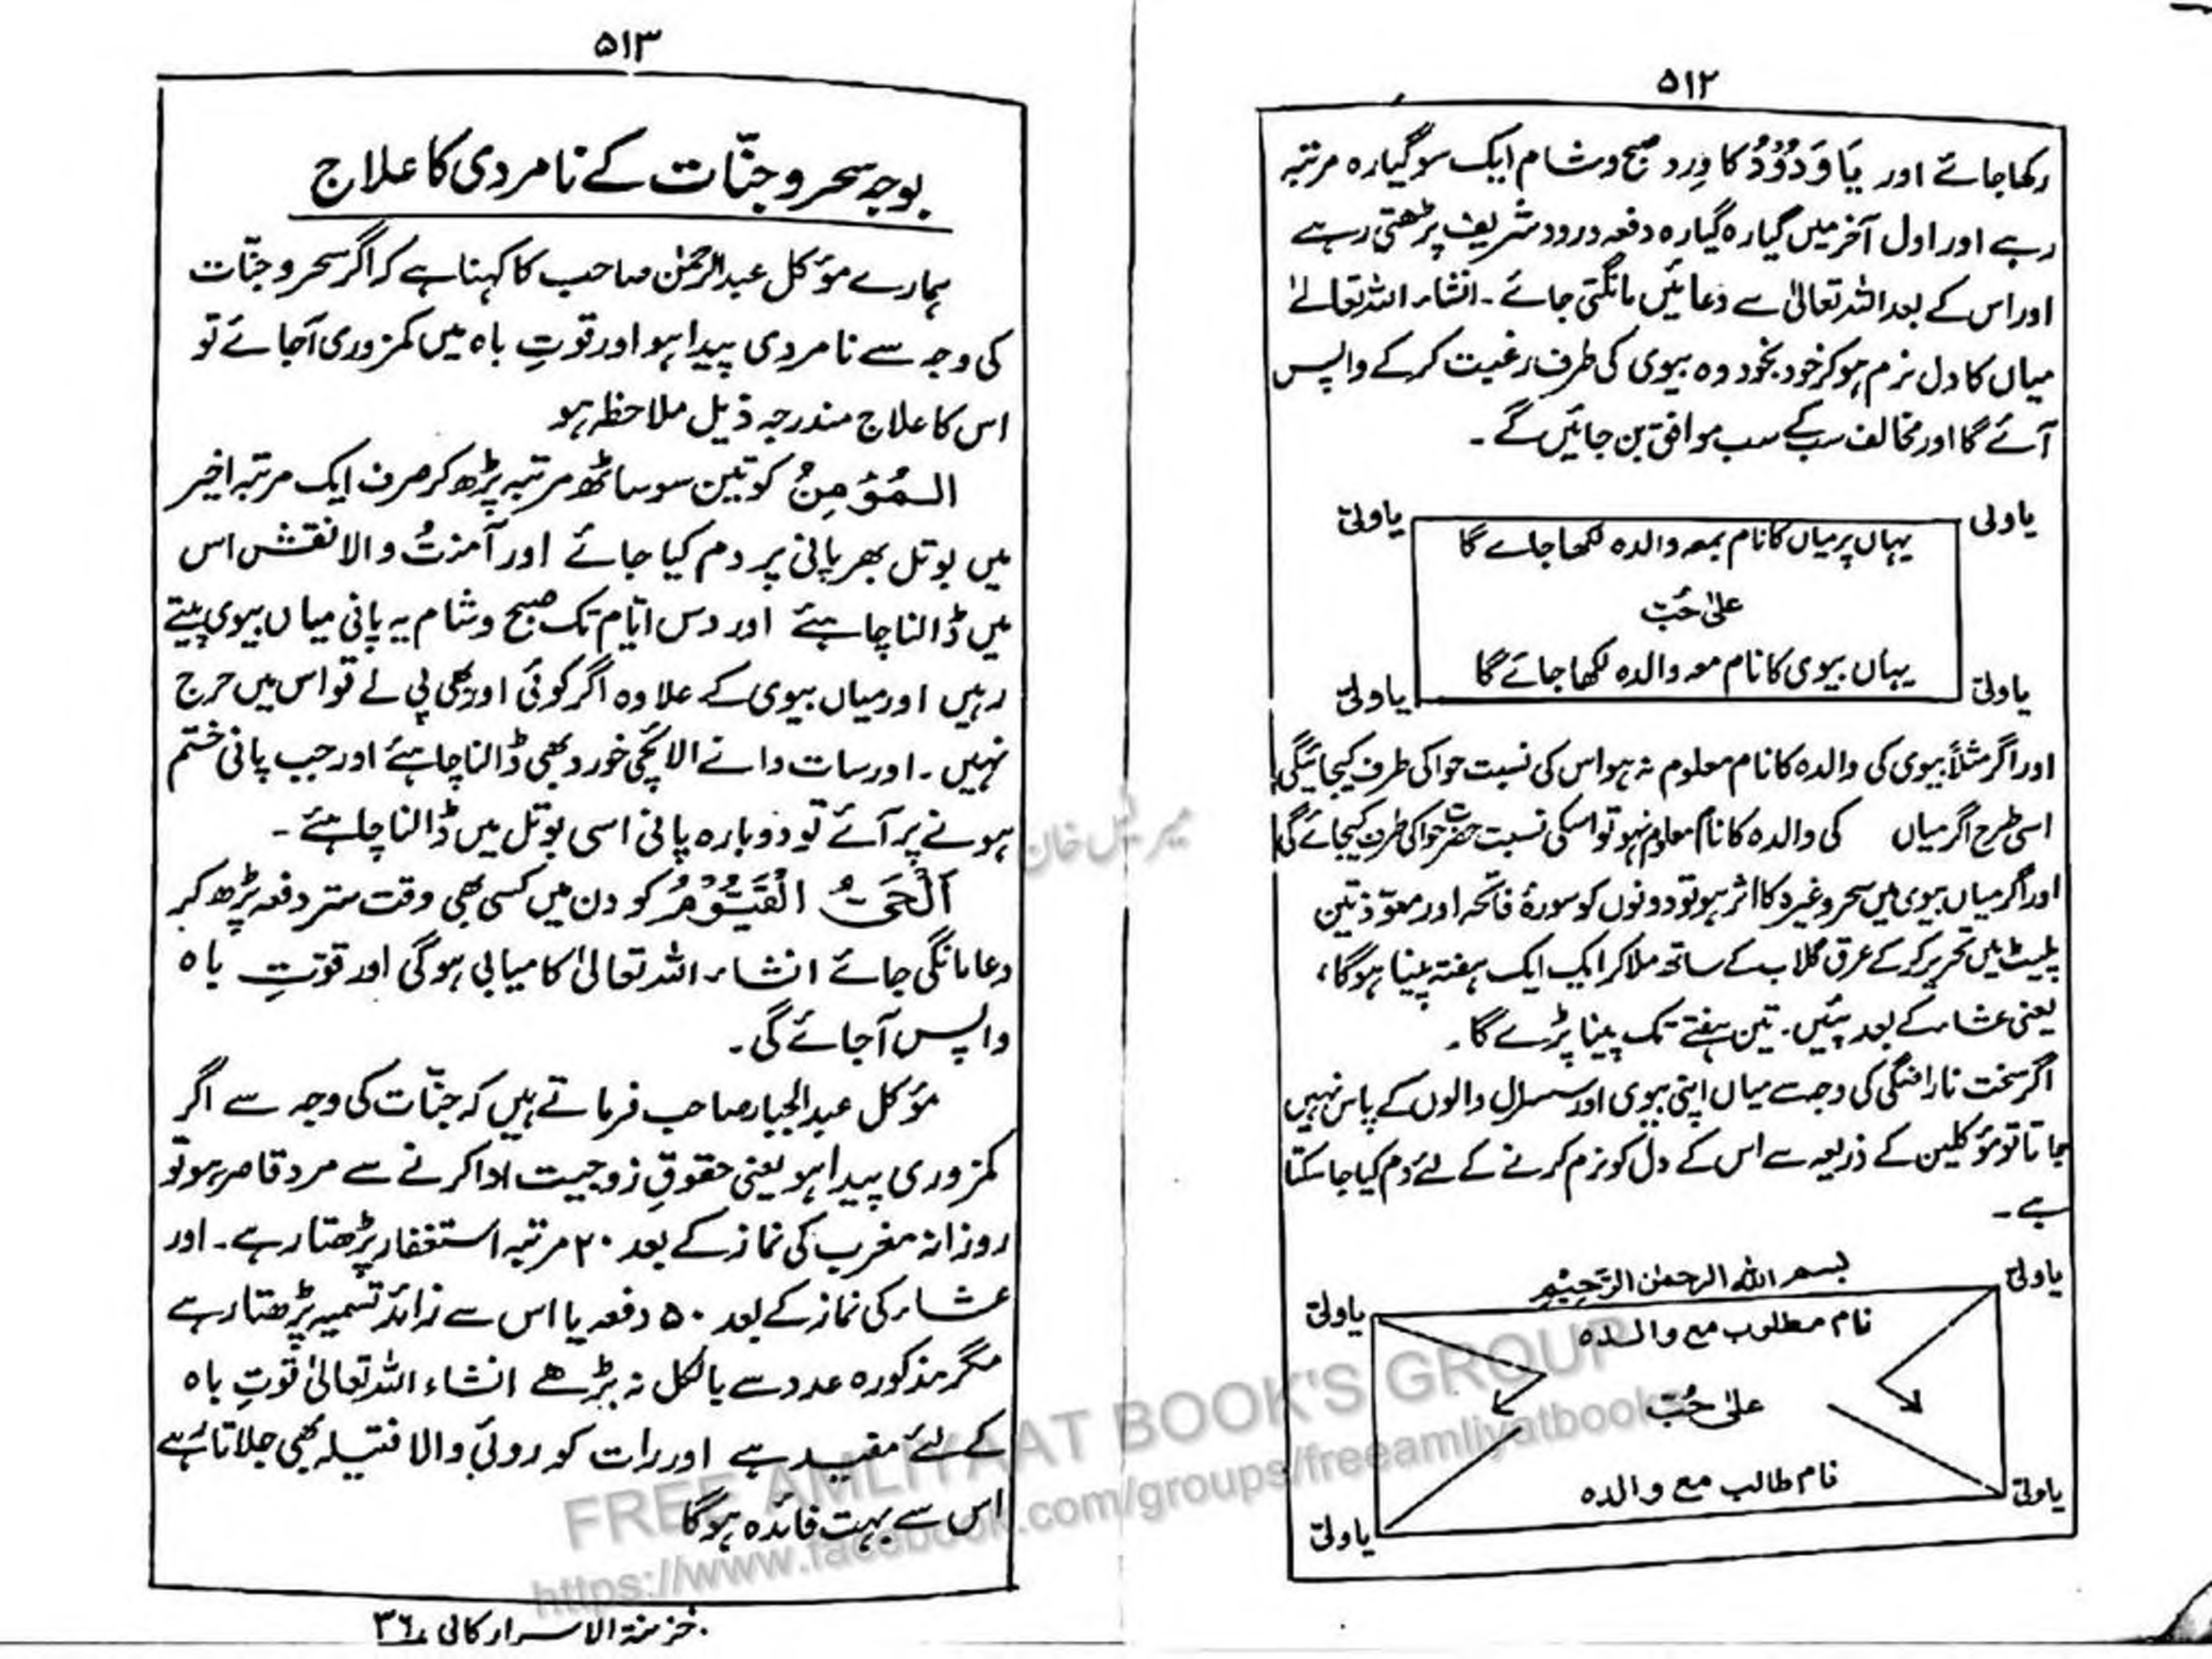 ۵۱۲
رکھا جائے اور یَا وَدُوْدُ کا وِرد صبح و شام ایک سو گیارہ مرتبہ
رہے اور اول آخر میں گیارہ گیارہ دفعہ درود شریف پڑھتی رہے
اور اس کے بعد اللہ تعالیٰ سے دعائیں مانگتی جائے۔ انشاء اللہ تعالےٰ
میاں کا دل نرم ہو کر خود بخود وہ بیوی کی طرف رغبت کر کے واپس
آئے گا اور مخالف سب کے سب موافق بن جائیں گے۔
یا ولی
یا ولیّ
یہاں پر میاں کا نام بمعہ والدہ لکھا جائے گا
علیٰ حُبّ
یہاں بیوی کا نام معہ والدہ لکھا جائے گا
یا ولیّ
یا ولیّ
اور اگر مثلاً بیوی کی والدہ کا نام معلوم نہ ہو اس کی نسبت حوا کی طرف کیجائیگی
اسی طرح اگر میاں کی والدہ کا نام معلوم نہو تو اسکی نسبت حضرت حوا کی طرف کیجائے گی
اور اگر میاں بیوی میں سحر وغیرہ کا اثر ہو تو دونوں کو سورۂ فاتحہ اور معوّذتین
پلیٹ میں تحریر کر کے عرق گلاب کے ساتھ ملا کر ایک ایک ہفتہ پینا ہوگا،
یعنی عشاء کے بعد پئیں۔ تین ہفتے تک پینا پڑے گا۔
اگر سخت ناراضگی کی وجہ سے میاں اپنی بیوی اور سسرال والوں کے پاس نہیں
جاتا تو مؤکلین کے ذریعہ سے اس کے دل کو نرم کرنے کے لئے دم کیا جا سکتا
ہے۔
بسم اللہ الرحمٰن الرَّحِیْمِ
یا ولیّ
یا ولیّ
نام مطلوب مع والدہ
علیٰ حُبّ
نام طالب مع والدہ
یا ولیّ
یا ولیّ
۵۱۳
بوجہ سحر و جنّات کے نامردی کا علاج
ہمارے مؤکل عبدالرحمٰن صاحب کا کہنا ہے کہ اگر سحر و جنّات
کی وجہ سے نامردی پیدا ہو اور قوتِ باہ میں کمزوری آجائے تو
اس کا علاج مندرجہ ذیل ملاحظہ ہو
الـمُؤمِنُ کو تین سو ساٹھ مرتبہ پڑھ کر صرف ایک مرتبہ اخیر
میں بوتل بھر پانی پر دم کیا جائے اور آمنتُ والا نقش اس
میں ڈالنا چاہئے اور دس ایّام تک صبح و شام یہ پانی میاں بیوی پیتے
رہیں اور میاں بیوی کے علاوہ اگر کوئی اور بھی پی لے تو اس میں حرج
نہیں۔ اور سات دانے الائچی خورد بھی ڈالنا چاہئے اور جب پانی ختم
ہونے پر آئے تو دوبارہ پانی اسی بوتل میں ڈالنا چاہئے۔
اَلْحَیُّ الْقَیُّوْمُ کو دن میں کسی بھی وقت ستر دفعہ پڑھ کر
دعا مانگی جائے انشاء اللہ تعالیٰ کامیابی ہوگی اور قوّتِ باہ
واپس آجائے گی۔
مؤکل عبدالجبار صاحب فرماتے ہیں کہ جنّات کی وجہ سے اگر
کمزوری پیدا ہو یعنی حقوقِ زوجیت ادا کرنے سے مرد قاصر ہو تو
روزانہ مغرب کی نماز کے بعد ۲۰ مرتبہ استغفار پڑھتا رہے۔ اور
عشاء کی نماز کے بعد ۵۰ دفعہ یا اس سے زائد تسمیہ پڑھتا رہے
مگر مذکورہ عدد سے بالکل نہ بڑھے انشاء اللہ تعالیٰ قوتِ باہ
کے لئے مفید ہے اور رات کو روئی والا فتیلہ بھی جلاتا رہے
اس سے بہت فائدہ ہوگا
خزینۃ الاسرار کالی ۳۶
FREE AMLIYAAT BOOK'S GROUP
https://www.facebook.com/groups/freeamliyatbooks